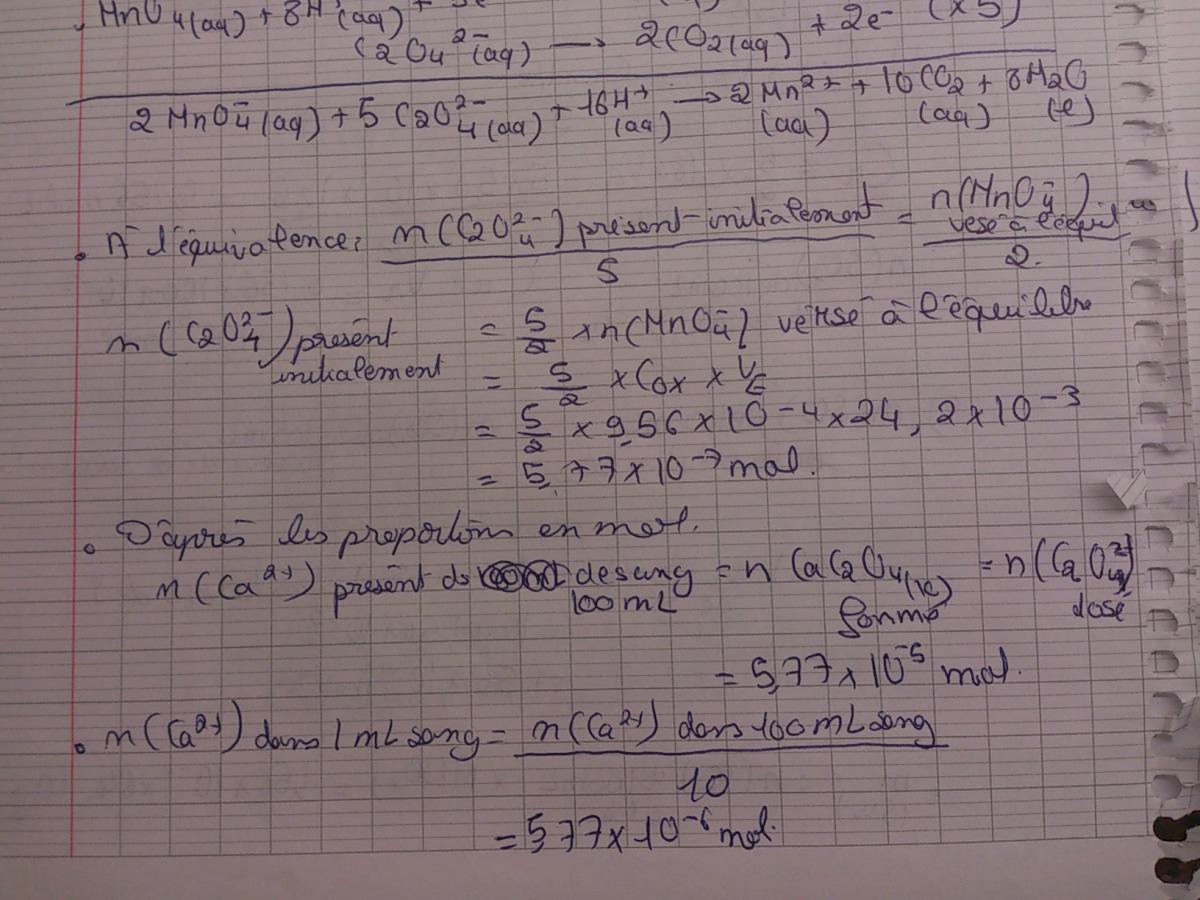 MnO4(aq) + 8H+(aq) +
C2O4²⁻(aq) → 2CO2(aq) + 2e⁻ (×5)
2 MnO4⁻(aq) + 5 C2O4²⁻(aq) + 16H⁺(aq) → 2 Mn²⁺(aq) + 10CO2(aq) + 8H2O(l)
• A l'équivalence: n(C2O4²⁻) présent initialement / 5 = n(MnO4⁻) vesé à l'équil / 2.
n(C2O4²⁻) présent initialement = 5/2 × n(MnO4⁻) versé à l'équilibre
= 5/2 × Cox × VE
= 5/2 × 9,56 × 10⁻⁴ × 24,2 × 10⁻³
= 5,77 × 10⁻⁷ mol.
• D'après les proportions en mol.
n(Ca²⁺) présent ds de sang 100mL = n CaC2O4(s) formé = n(C2O4²⁻) dosé
= 5,77 × 10⁻⁵ mol.
• n(Ca²⁺) dans 1 mL sang = n(Ca²⁺) dans 100 mL sang / 10
= 5,77 × 10⁻⁶ mol.